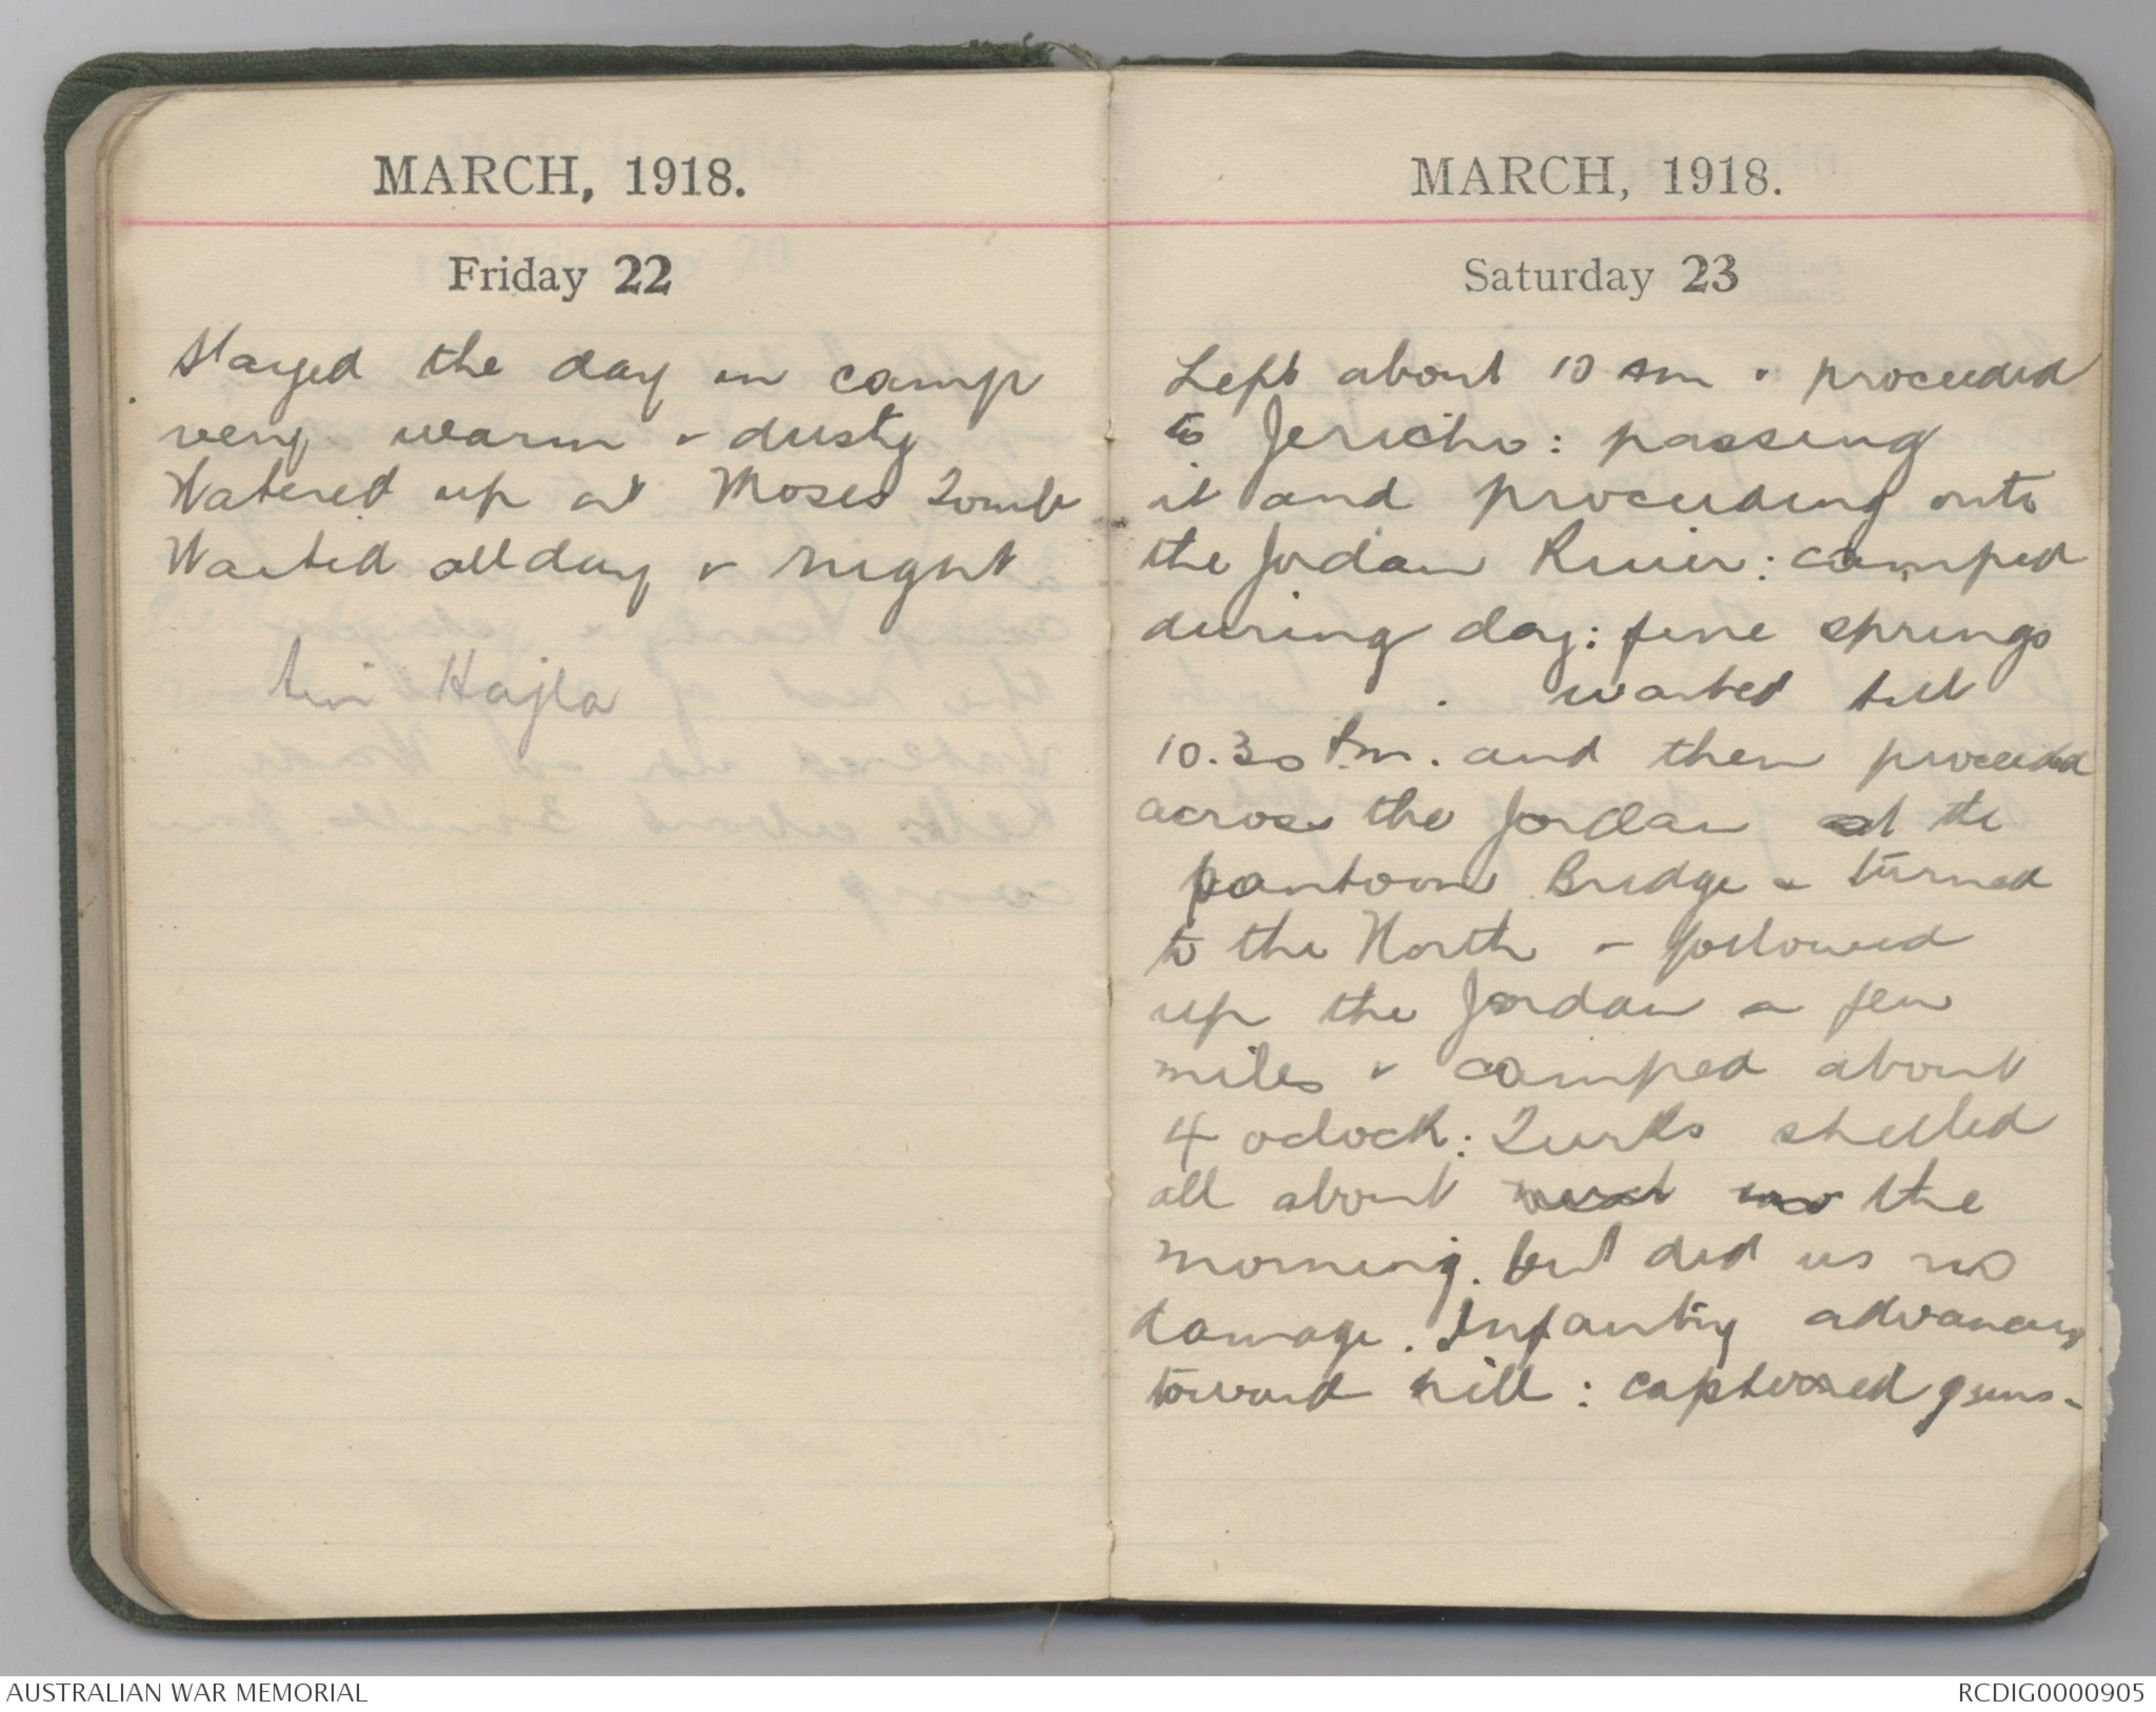 MARCH, 1918.
Friday 22
Stayed the day in camp
very warm & dusty
Watered up at Moses Tomb
Waited all day & night
Ain Hajla
MARCH, 1918.
Saturday 23
Left about 10 am & proceeded
to Jericho: passing
it and proceeding onto
the Jordan River: camped
during day: fine springs
. waited till
10.30 P.m. and then proceeded
across the Jordan at the
pontoon Bridge & turned
to the North - followed
up the Jordan a few
miles & camped about
4 oclock: Turks shelled
all about the
morning. but did us no
damage. Infantry advancing
toward hill: captured guns-
AUSTRALIAN WAR MEMORIAL
RCDIG0000905